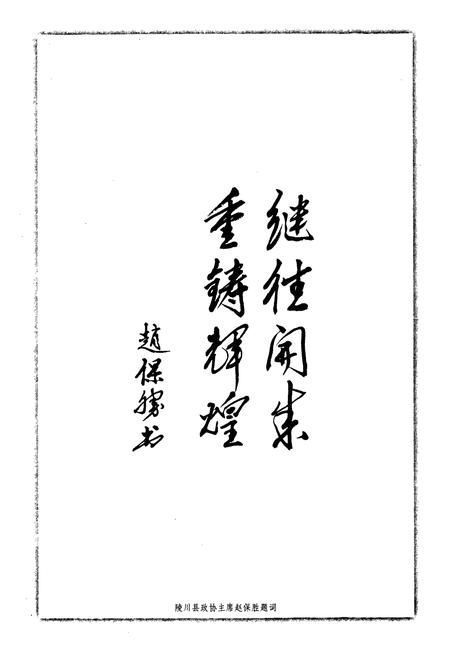 继往开来
重铸辉煌
赵保胜书
陵川县政协主席赵保胜题词